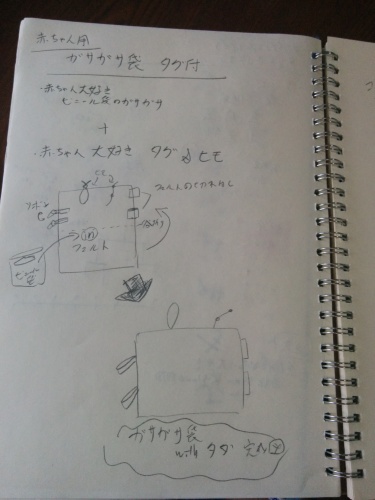 赤ちゃん用
ガサガサ袋 タグ付
・赤ちゃん大好き
ビニール袋のガサガサ
+
・赤ちゃん大好き タグ&ヒモ
ヒモ
フェルトの切れはし
リボン
in
フェルト
ビニール袋
ガサガサ袋
with タグ 完成